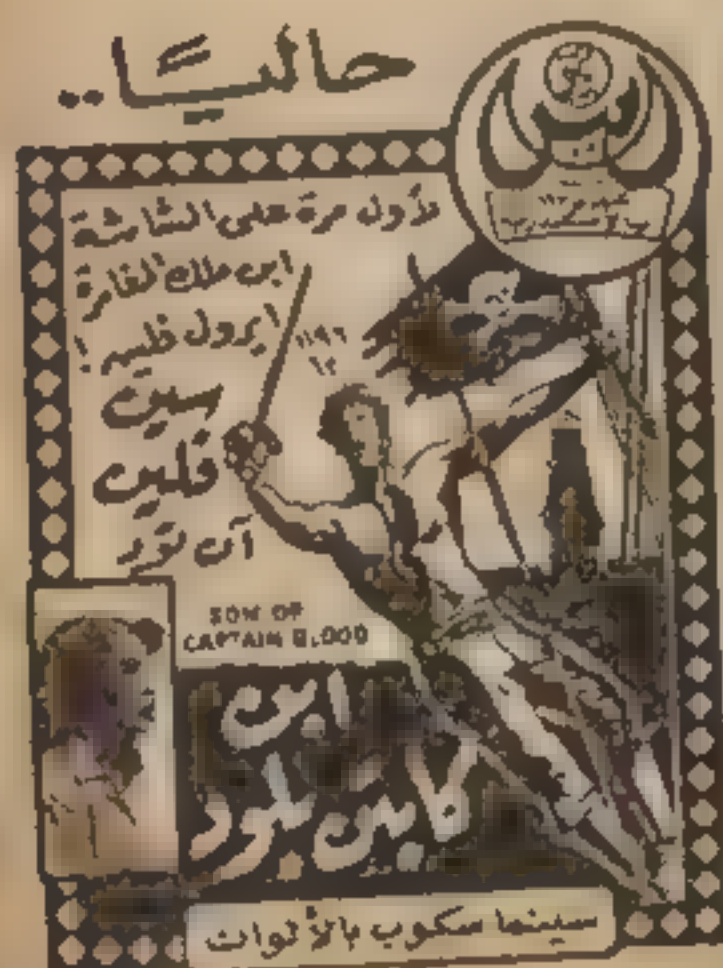 حاليًا..
لأول مرة على الشاشة
ابن ملك القارة
ايرول فلين !
سين
فلين
آن تود
SON OF
CAPTAIN BLOOD
ابن
كابتن بلود
سينما سكوب بالألوان